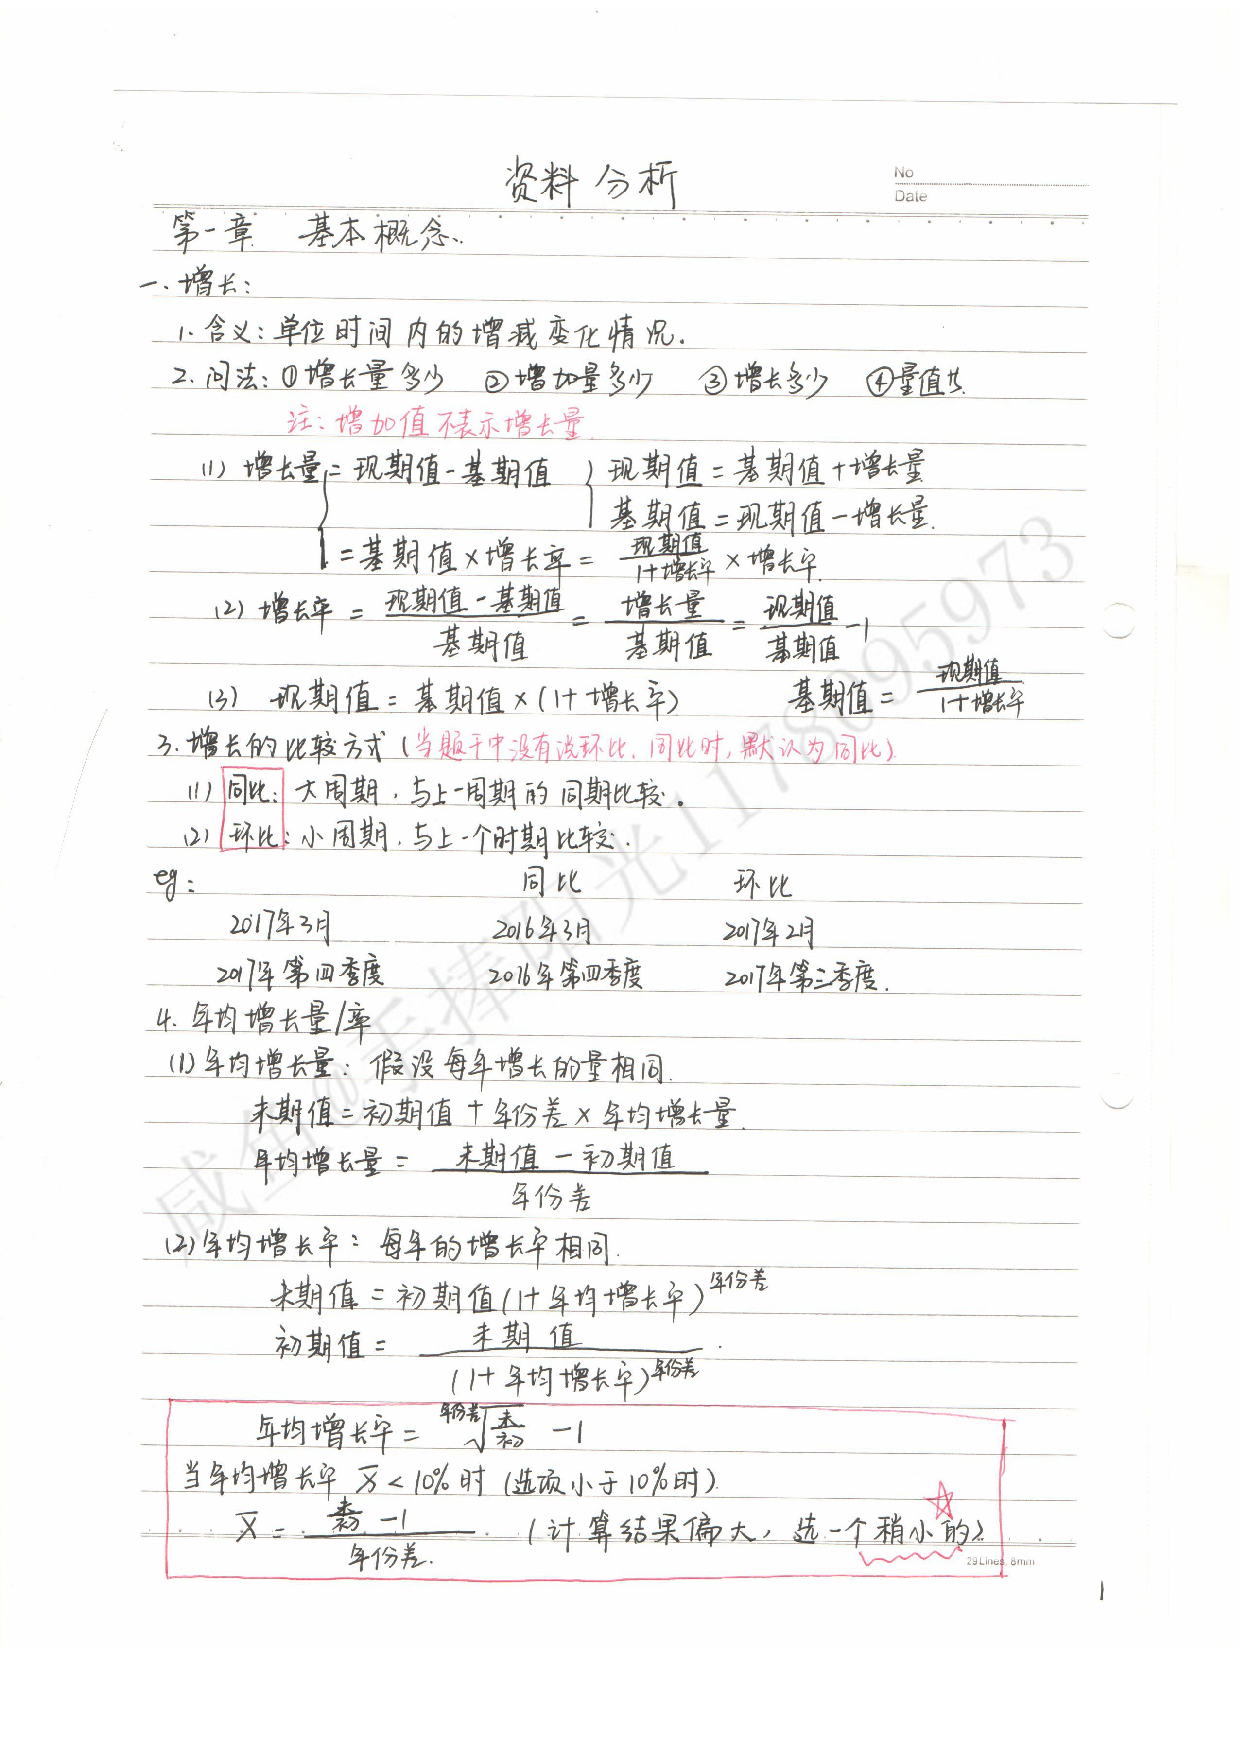 资料分析
No
Date
第一章 基本概念
一、增长:
1. 含义: 单位时间内的增减变化情况.
2. 问法: ①增长量多少 ②增加量多少 ③增长多少 ④量值共
注: 增加值不表示增长量
(1) 增长量 = 现期值 - 基期值 { 现期值 = 基期值 + 增长量
基期值 = 现期值 - 增长量.
= 基期值 × 增长率 = 现期值/(1+增长率) × 增长率
(2) 增长率 = (现期值 - 基期值)/基期值 = 增长量/基期值 = 现期值/基期值 - 1
(3) 现期值 = 基期值 × (1+增长率) 基期值 = 现期值/(1+增长率)
3. 增长的比较方式 (当题干中没有说环比、同比时, 默认为同比)
(1) 同比: 大周期, 与上一周期的同期比较.
(2) 环比: 小周期, 与上一个时期比较.
eg: 同比 环比
2017年3月 2016年3月 2017年2月
2017年第四季度 2016年第四季度 2017年第三季度.
4. 年均增长量/率
(1) 年均增长量: 假设每年增长的量相同.
末期值 = 初期值 + 年份差 × 年均增长量.
年均增长量 = (末期值 - 初期值)/年份差
(2) 年均增长率: 每年的增长率相同.
末期值 = 初期值(1+年均增长率)^年份差
初期值 = 末期值/(1+年均增长率)^年份差
年均增长率 = 年份差√(末/初) - 1
当年均增长率 x̄ < 10%时 (选项小于10%时).
x̄ = (末/初 - 1)/年份差. (计算结果偏大, 选一个稍小的)
29Lines, 8mm
1
咸鱼@手捧阳光1178095973